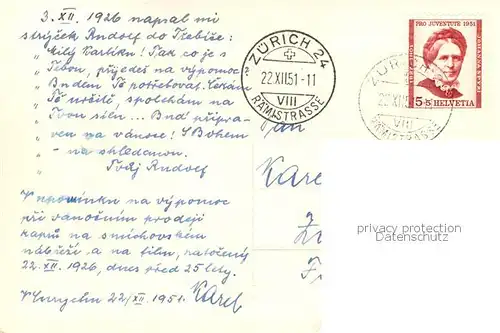 3. XII. 1926 napsal mi
strýček Rudolf do Třebíče:
„ Milý Karlíku! Tak co je s
„ Tebou, přijedeš na výpomoc
„ Budem Tě potřebovat. Čekám
„ Tě určitě, spoléhám na
„ Tvou sílu... Buď připra-
„ ven na vánoce! S Bohem
„ - na shledanou.
„ Tvůj Rudolf
Vzpomínku na výpomoc
při vánočním prodeji
kaprů na smíchovském
nábřeží a na film, natočený
22. XII. 1926, dnes před 25 lety.
V Curychu 22/XII. 1951. Karel
ZÜRICH 24
22.XII.51-11
VIII
RÄMISTRASSE
PRO JUVENTUTE 1951
5+5 HELVETIA
ZÜRICH
22.XII.51
VIII
RÄMISTRASSE
Pan
Karel
privacy protection
Datenschutz